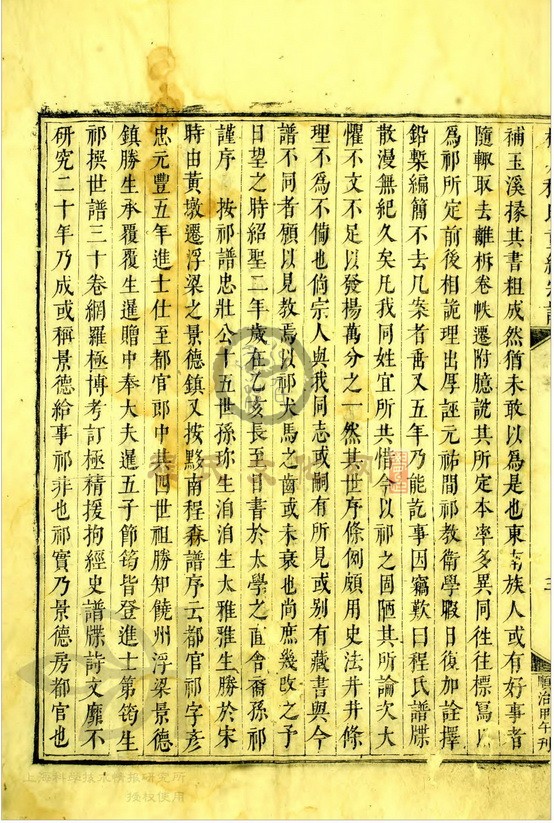 補玉溪掾其書粗成然猶未敢以為是也東南族人或有好事者
隨輙取去離析卷帙遷附臆說其所定本率多異同徃徃標寫以
為祁所定前後相詭理出厚誣元祐間祁教衛學暇日復加詮擇
鉛槧編簡不去几案者畨又五年乃能訖事因竊歎曰程氏譜牒
散漫無紀久矣凡我同姓宜所共惜今以祁之固陋其所論次大
懼不文不足以發楊萬分之一然其世序條例頗用史法井井條
理不為不備也倘宗人與我同志或嗣有所見或别有藏書與今
譜不同者願以見教焉以祁犬馬之齒或未衰也尚庶幾改之予
日望之時紹聖二年歲在乙亥長至日書於太學之直舍裔孫祁
謹序　按祁譜忠壯公十五世孫珎生洎洎生大雅雅生勝於宋
時由黃墩遷浮梁之景德鎮又按黟南程森譜序云都官祁字彦
忠元豐五年進士仕至都官郎中其四世祖勝知饒州浮梁景德
鎮勝生承覆覆生暹贈中奉大夫暹五子節筠皆登進士第筠生
祁撰世譜三十卷網羅極博考訂極精援拘經史譜牒詩文靡不
研究二十年乃成或稱景德給事祁非也祁實乃景德房都官也
順治
午刊
上海科学技术情报研究所
授权使用